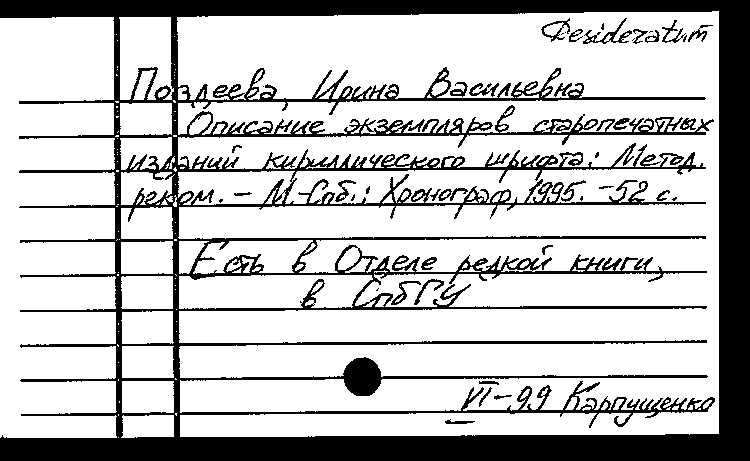 Desideratum
Поздеева, Ирина Васильевна
Описание экземпляров старопечатных
изданий кириллического шрифта: Метод.
реком. – М.-Спб.: Хронограф, 1995. – 52 с.
Есть в Отделе редкой книги,
в СпбГУ
VI – 99 Карпущенко